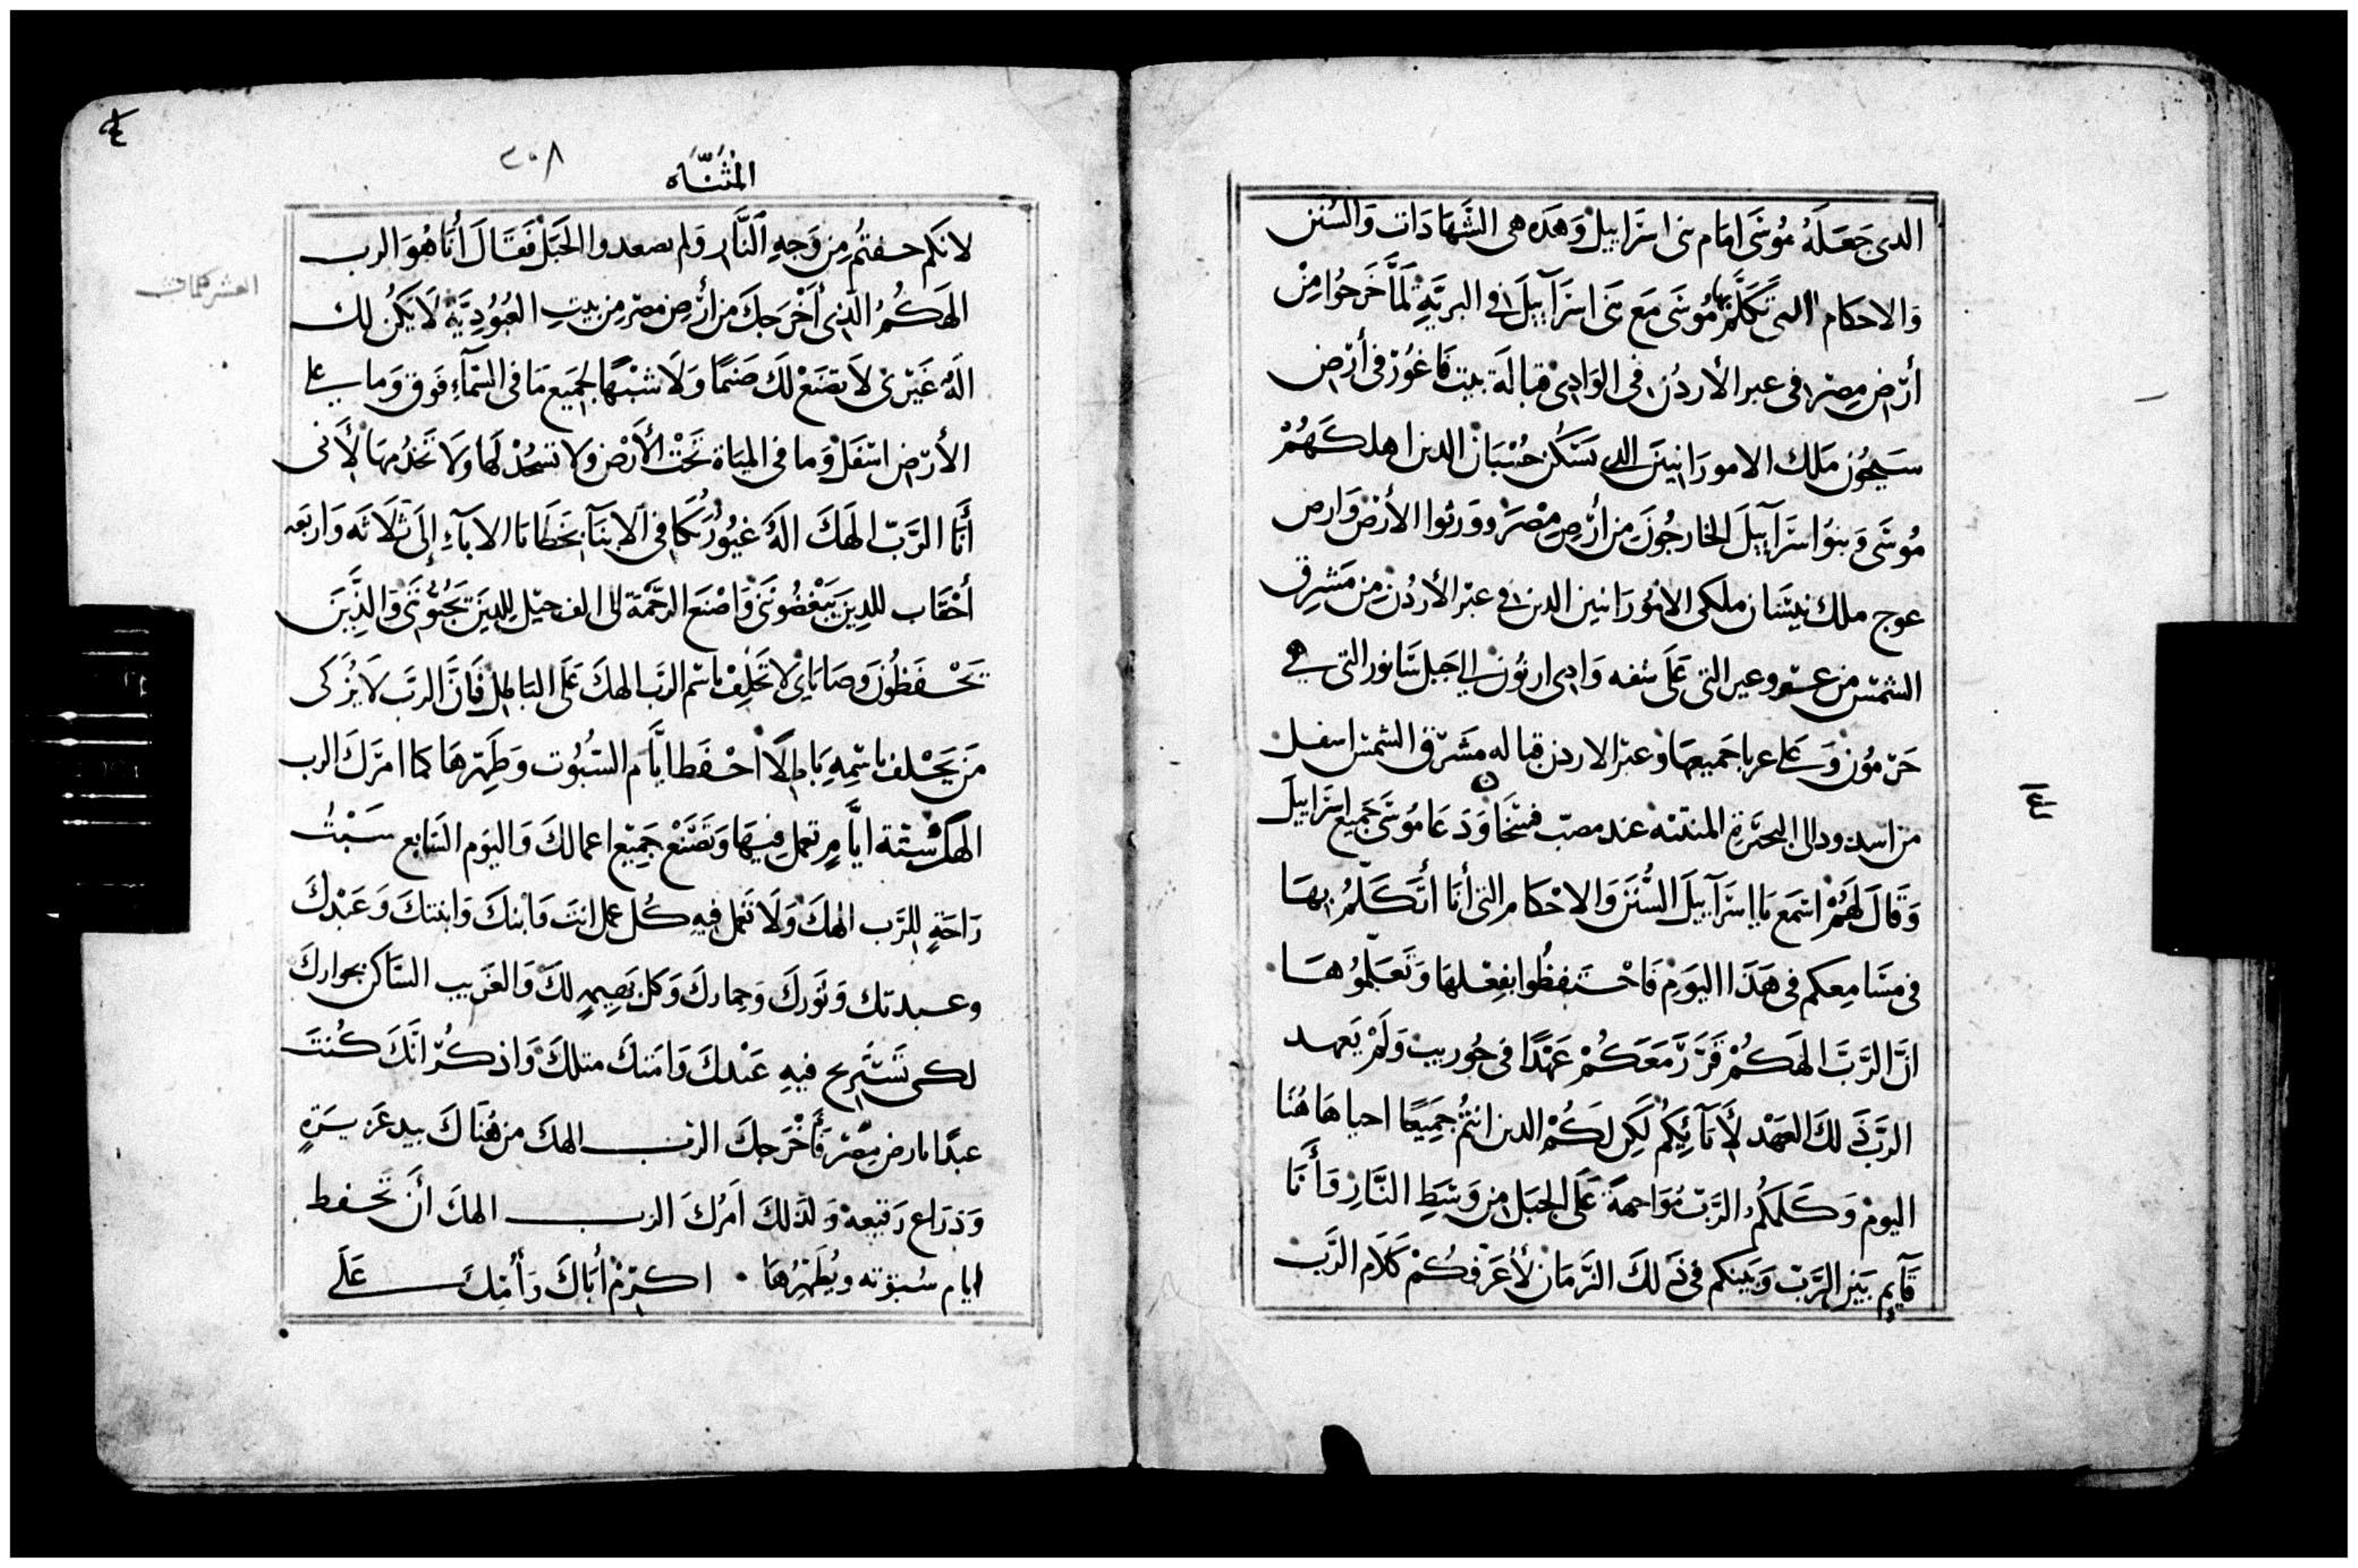 الدى جَعَلَهُ مُوسَى امَام بنى اسرَاييلَ وَهَده هى الشَهَادَات وَالسُنن
وَالاحكام التى تَكَلَّم بها مُوسَى مَع بَنى اسرَآييلَ فى البريَّةِ لَمَّا خَرَجُوا مِنْ
أرْض مِصْر فى عبر الأردُن فى الوَادِى قبالَة بيت فَاغُوْر فى أرْض
سَيحُون مَلك الامورَانيينَ الدى يَسْكن حُسْبَان الدين اهلكهُمْ
مُوسَى وَبنوُا اسرَآييلَ الخارجُونَ مِن أرْضِ مِصْرَ وورثوا الأرْض وَارض
عوج ملك نيسَان ملكى الامُورَانيين الدين فى عبْر الأردُن مِن مَشرِق
الشمْس من عَروعير التى عَلَى شفه وَادى ارنُون الى جبل سَانور التى هى
حَرْمُون وَعلى عربا جَميعهَا وَعبْر الاردن قباله مَشرْق الشمْس اسفل
من اسدود الى البحَيْرَةِ المنتنه عند مصبّ فسْخَا وَدَعَا مُوسَى جَميع اسرَاييلَ
وَقَالَ لَهُمْ اسْمَع يَا إسرَآييلَ السُّنَنَ وَالاحْكام التى أنَا أتَكَلَّمُ بِهَا
فى مسَامِعكم فى هَدَا اليَوْم فَاحْتَفِظُوا بفِعْلهَا وَتَعَلّمُوهَا
انَّ الرَّبَّ الهَكُمْ قَرَّرَ مَعَكُمْ عَهْدًا فى حُوريب وَلَمْ يَعهد
الرَّبّ ذَلكَ العَهْد لأَبَآئِكُمْ لَكِن لَكُمْ الدين انتُمْ جَمِيعًا احيا هَاهُنَا
اليومْ وَكَلَّمَكُم الرَّبّ مُوَاجهةً عَلَى الجبَل مِن وَسَطِ النَّارِ وَأَنَا
قَآيم بَيْن الرَّبّ وَبَينكم فى ذَلكَ الزَّمَان لأُعَرّفكُمْ كَلَام الرَّب
٤
٢٠٨
المُثنّاه
لانكم خفتُم مِن وَجهِ النَّار وَلم تصعدوا الجَبَل فَقَالَ أَنَا هُوَ الرب
العشر كلمات
الهَكُمْ الَّذِى أَخْرَجكَ من أرْض مصْر مِن بيتِ العُبُوْدِيَّة لَا يَكُن لك
الَهٌ غَيْرى لاَ تصْنَعْ لكَ صَنمًا وَلَا شبْهًا لجَميَع مَا فى السَّمآءِ فَوق وَما على
الأرْض اسْفَل وَما فى المِيَاة تَحْت الأَرْض وَلا تسْجُدْ لهَا وَلَا تخدُمهَا لأَنى
أَنَا الرَّبّ الهَكَ الَهٌ غيُورٌ مكافى الابنَآ بخَطَايَا الابآءِ إلَى ثلَاثَه وَاربَعه
أحْقَاب للذِينَ يَبْغَضُونَنى وَاصْنعَ الرَّحْمَة الى الف جيْل لِلذِينَ يحبُّوننى وَالذِينَ
يَحْفَظُونَ وصَايَاى لا تَحْلِف باسْم الرّب الهكَ عَلَى البَاطِل فَانَّ الرّب لَا يُزَكى
مَن يَحْلف باسْمِهِ بَاطلًا احْفَظ ايَّام السُّبُوت وَطَهِّرهَا كما امرَك الرب
الهكَ سِتَّة ايَّام تعمل فِيهَا وَتَصْنَعْ جَمِيْع اعمالكَ وَاليَوم السَّابع سَبْتُ
رَاحَةٍ للرَّب الهكَ وَلَا تعمَل فيه كُل عمل انتَ وَابنكَ وَابنتكَ وَعَبْدكَ
وعبدتك وَثورك وَحمارك وَكل بَهِيمٍ لكَ وَالغَريب السَّاكن بجوارك
لكى تَسْتَريح فيهِ عَبْدكَ وَامَتكَ مثلكَ وَاذكُرْ انَّكَ كُنتَ
عبدًا بارض مِصْر فَأَخْرَجكَ الرب الهكَ من هُنَاكَ بيد عَزيزَةٍ
وَذرَاع رَفيعهْ وَلذَلكَ اَمَرُكَ الرب الهكَ أَن تَحْفط
ايام سُبوته ويُطَهِّرُهَا • اكرِمْ أَبَاكَ وَأُمّكَ عَلَى